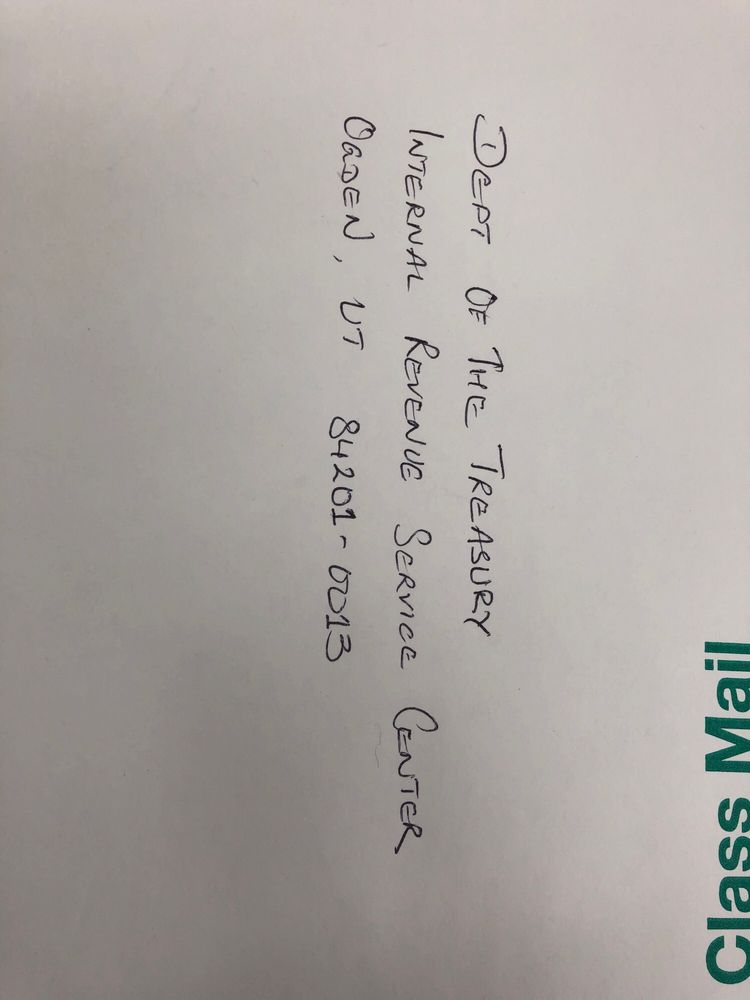 Class Mail
DEPT OF THE TREASURY
INTERNAL REVENUE SERVICE CENTER
OGDEN, UT 84201-0013